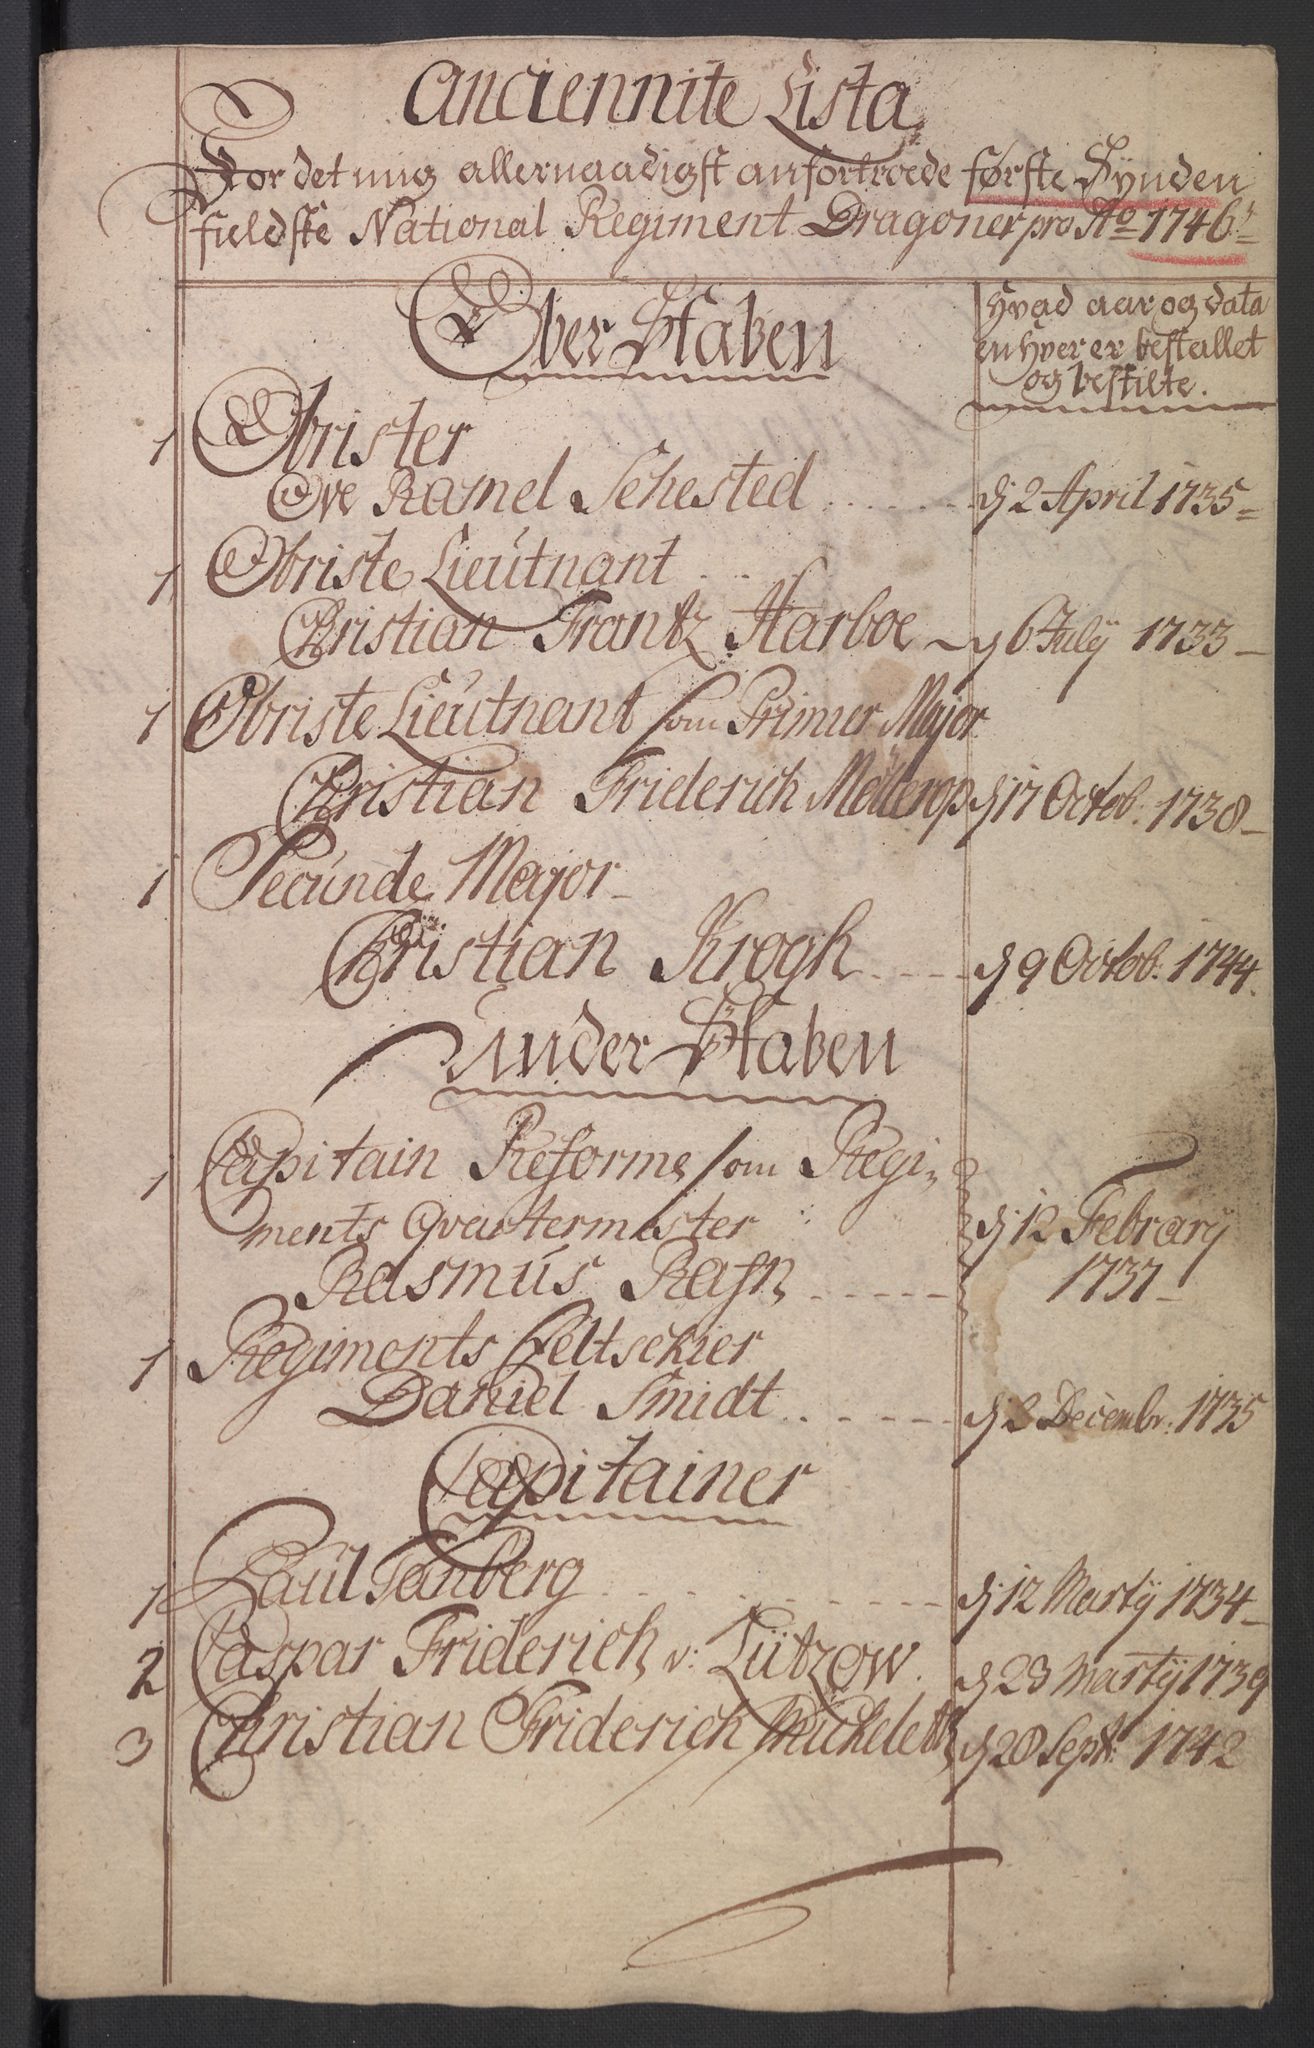 Anciennite Lista
For det mig allernaadigst anfortroede første Synden
fieldske National Regiment Dragoner pro Ao 1746
Ober Staben
Hvad aar og data
en hver er bestallet
og bestilte.
1 Obrister
Ove Ramel Sehested d 2 April 1735
1 Obriste Lieutnant
Christian Frantz Harboe d 6 July 1733
1 Obriste Lieutnant som Primier Major
Christian Friderich Möllerop d 17 Octob. 1738
1 Secunde Major
Christian Krogh d 9 Octob: 1744.
Under Staben
1 Capitain Reforme som Regi-
ments Qvartermester d 12 Febrary
Rasmus Rafn 1737
1 Regiments Feltschier
Daniel Smidt d 3 Decembr: 1735
Capitainer
1 Paul Tenberg d 12 Martÿ 1734
2 Caspar Friderich v: Lützow. d 23 Martÿ 1739
3 Christian Friderich d 20 Sept: 1742